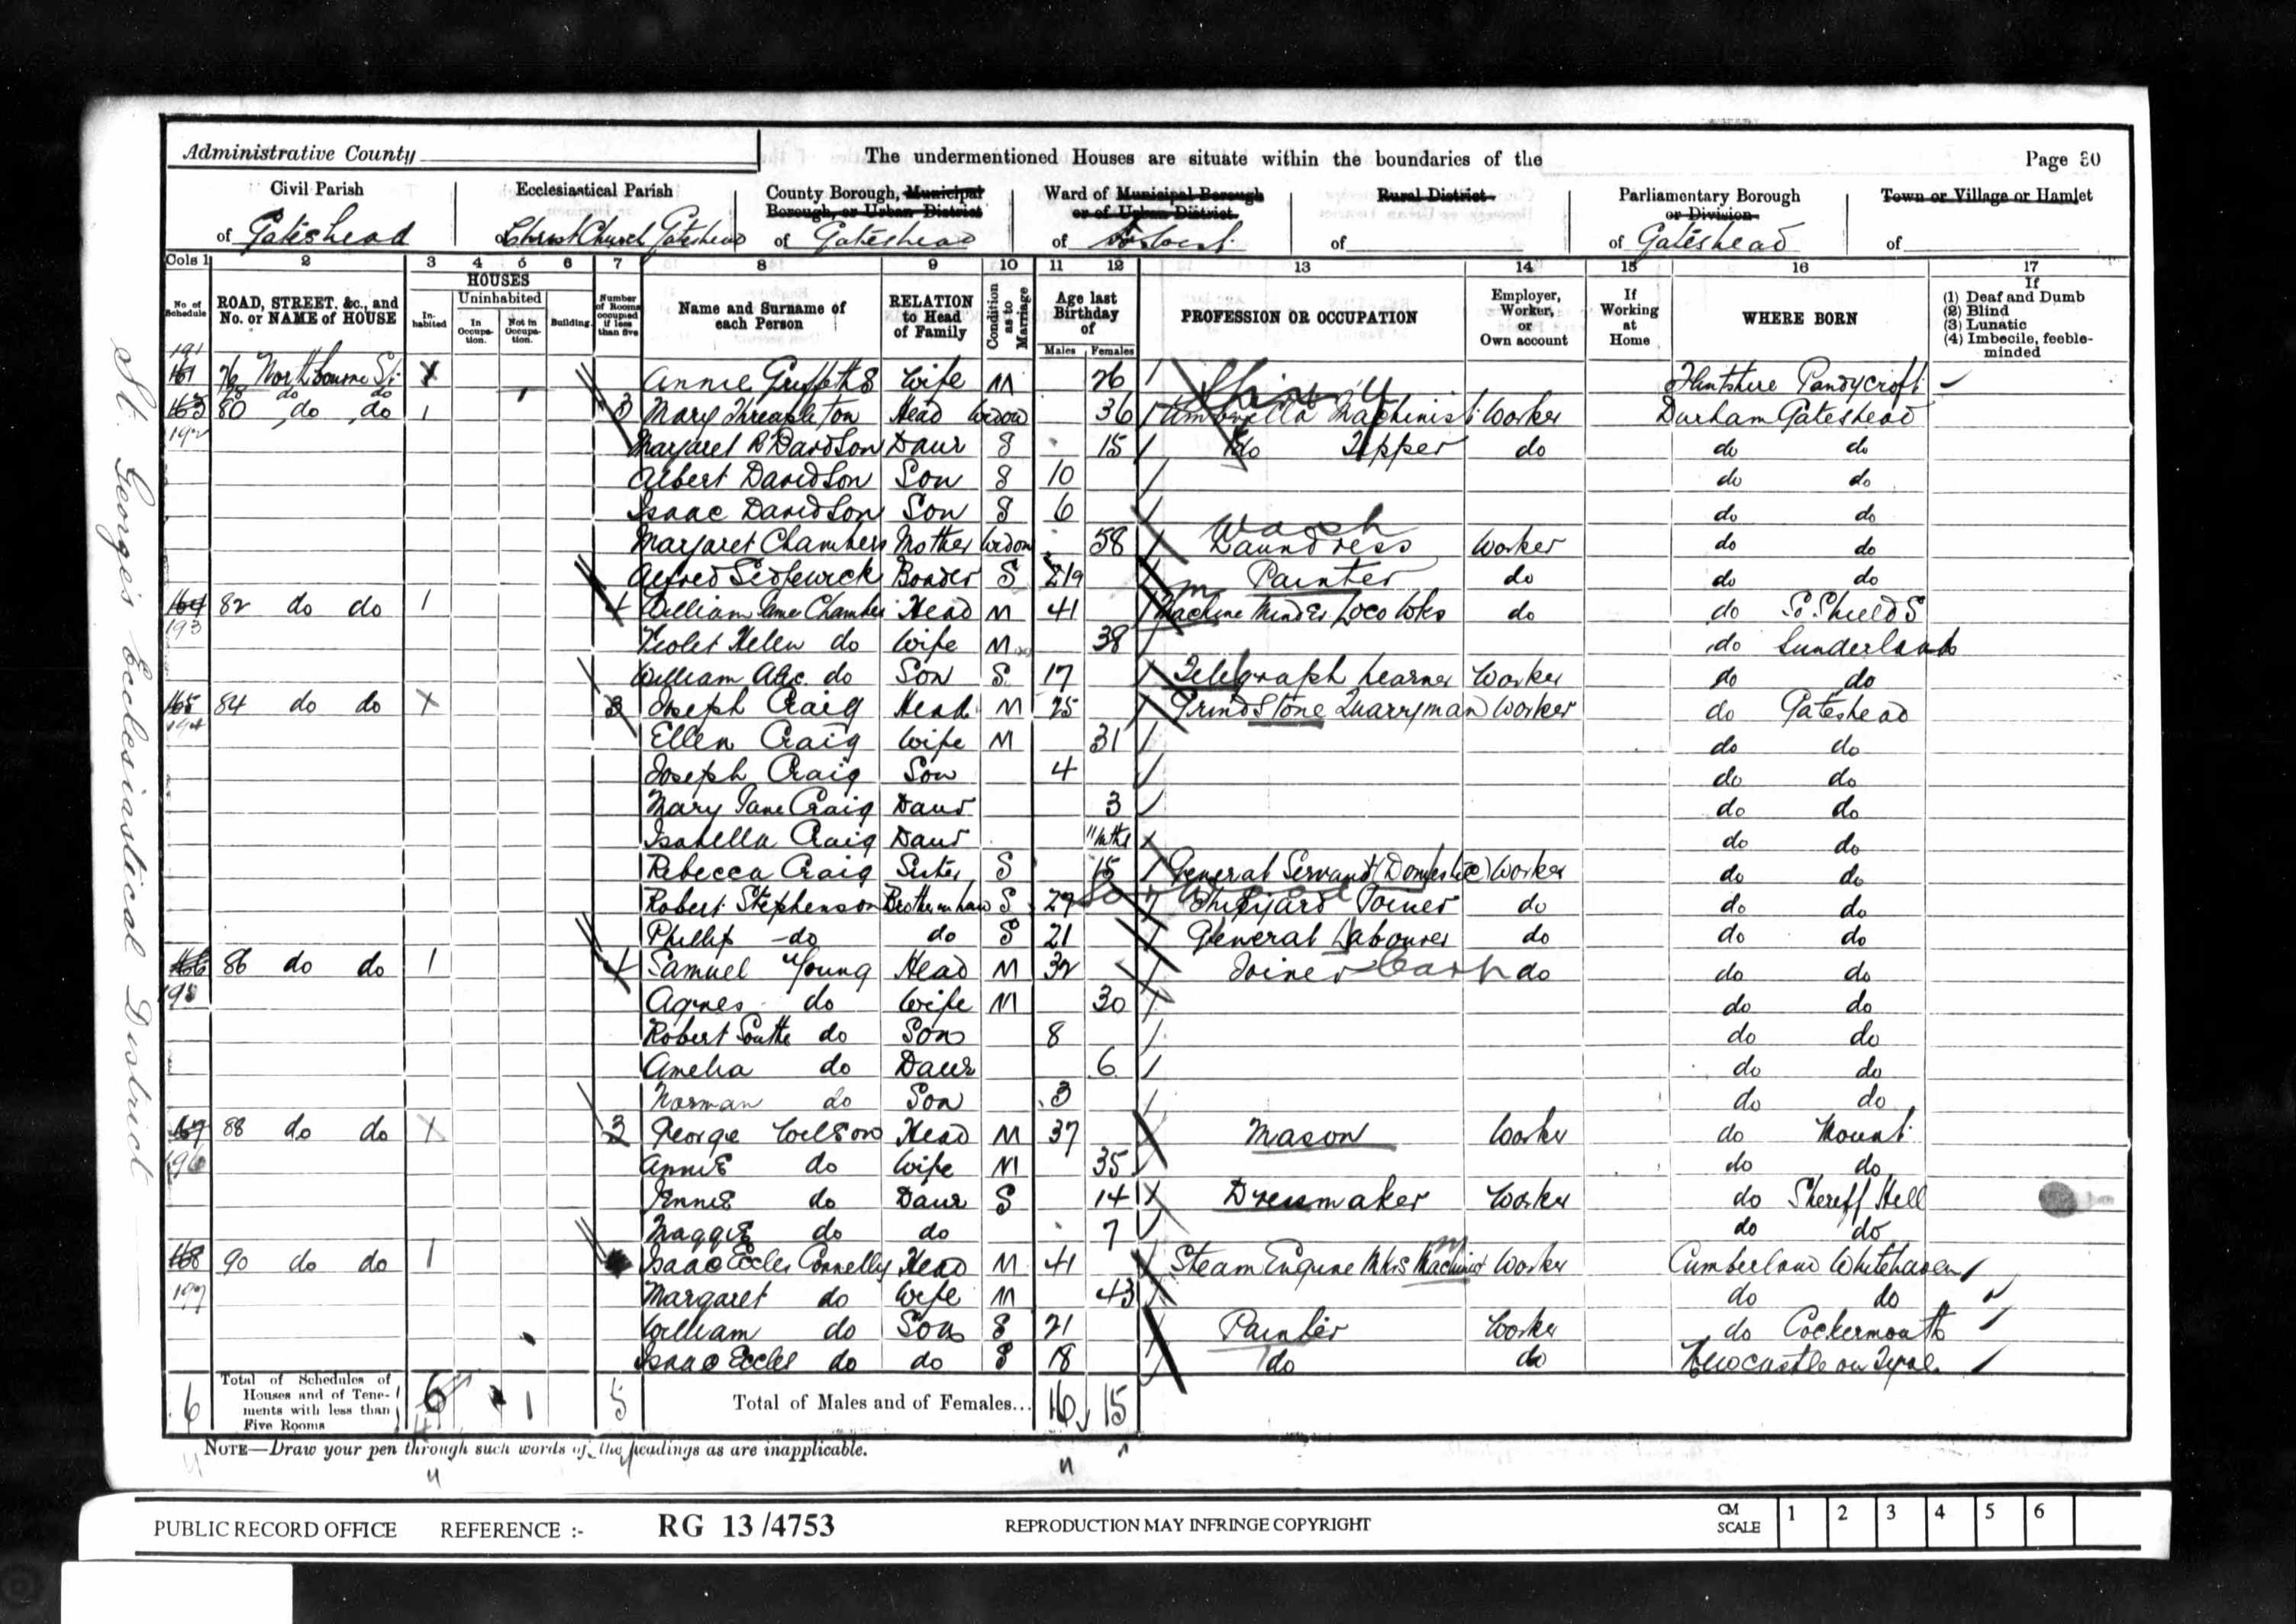 Administrative County
The undermentioned Houses are situate within the boundaries of the
Page 30
Civil Parish
of Gateshead
Ecclesiastical Parish
Christ Church Gateshead
County Borough, Municipal
Borough, or Urban District
of Gateshead
Ward of Municipal Borough
or of Urban District
of
Rural District
of
Parliamentary Borough
or Division
of Gateshead
Town or Village or Hamlet
of
Cols 1 2 3 4 5 6 7 8 9 10 11 12 13 14 15 16 17
No. of Schedule
ROAD, STREET, &c., and No. or NAME of HOUSE
HOUSES
Inhabited
Uninhabited
In Occupation.
Not in Occupation.
Building.
Number of Rooms occupied if less than five
Name and Surname of each Person
RELATION to Head of Family
Condition as to Marriage
Age last Birthday of
Males Females
PROFESSION OR OCCUPATION
Employer, Worker, or Own account
If Working at Home
WHERE BORN
If
(1) Deaf and Dumb
(2) Blind
(3) Lunatic
(4) Imbecile, feeble-minded
191
161 76 Northbourne St. Annie Griffiths Wife M 26 Flintshire Pandycroft
78 do do 1
163 80 do do 1 3 Mary Threapleton Head Widow 36 Umbrella Machinist Worker Durham Gateshead
192 Margaret R Davidson Daur S 15 do Tipper do do do
Albert Davidson Son S 10 do do
Isaac Davidson Son S 6 do do
Wash
Margaret Chambers Mother Widow 58 Laundress Worker do do
Alfred Sedgwick Boader S 19 Painter do do do
164 82 do do 1 4 William Jame Chambers Head M 41 Machine Minder Loco Wks do do So. Shields
193 Violet Helen do Wife M 38 do Sunderland
William Alx. do Son S 17 Telegraph Learner Worker do do
165 84 do do 3 Joseph Craig Head M 25 Grindstone Quarryman Worker do Gateshead
194 Ellen Craig Wife M 31 do do
Joseph Craig Son 4 do do
Mary Jane Craig Daur 3 do do
Isabella Craig Daur 11 mths do do
Rebecca Craig Sister S 15 General Servant (Domestic) Worker do do
Robert Stephenson Brother in law S 29 Shipyard Joiner do do do
Phillip do do S 21 General Labourer do do do
166 86 do do 1 4 Samuel Young Head M 32 Joiner Carp do do do
195 Agnes do Wife M 30 do do
Robert do Son 8 do do
Amelia do Daur 6 do do
Norman do Son 3 do do
167 88 do do 3 George Wilson Head M 37 Mason Worker do Mount
196 Annie do Wife M 35 do do
Jennie do Daur S 14 Dressmaker Worker do Sheriff Hill
Maggie do do 7 do do
168 90 do do 1 Isaac Eccles Connelly Head M 41 Steam Engine Mkrs Machinist Worker Cumberland Whitehaven
197 Margaret do Wife M 43 do do
William do Son S 21 Painter Worker do Cockermouth
Isaac Eccles do do S 18 do do Newcastle on Tyne
6 Total of Schedules of Houses and of Tenements with less than Five Rooms 6 1 5 Total of Males and of Females... 16 15
NOTE—Draw your pen through such words of the headings as are inapplicable.
St. George's Ecclesiastical District
PUBLIC RECORD OFFICE REFERENCE :- RG 13/4753 REPRODUCTION MAY INFRINGE COPYRIGHT CM SCALE 1 2 3 4 5 6